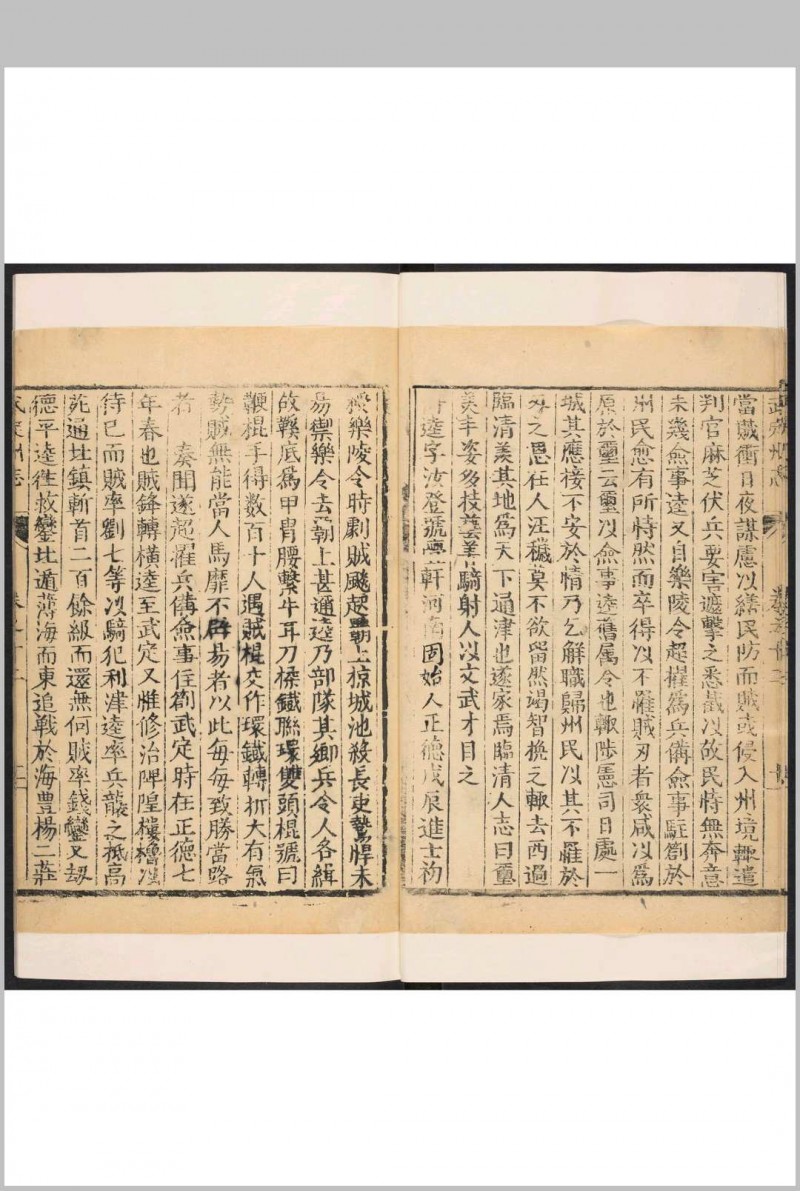 當賊衝日夜謀慮以繕民防而賊或侵入州境輙遣
判官麻芝伏兵要害遮擊之悉截以故民恃無奔意
未幾僉事逵又自樂陵令超擢爲兵備僉事駐劄於
州民愈有所恃然而卒得以不罹賊刃者衆咸以爲
原於璽云璽以僉事逵舊属令也輙陟憲司日處一
城其應接不安於情乃乞解職歸州民以其不罹於
之恩在人汪穢莫不欲留然竭智挽之輙去西過
臨清美其地爲天下通津也遂家焉臨清人志曰璽
美丰姿多技藝善騎射人以文武才目之
逵字汝登號軒河南固始人正德戊辰進士初
授樂陵令時劇賊飈起朝上掠城池殺長吏驁悍未
易禦樂令去朝上甚邇逵乃部隊其鄉兵令人各緝
故鞵底爲甲冑腰繫牛耳刀操鐵聯環雙頭棍號曰
鞭棍手得数百十人遇賊棍交作環鐵轉折大有氣
勢賊無能當人馬靡不辟易者以此每每致勝當路
者 奏聞遂超擢兵備僉事住劄武定時在正德七
年春也賊鋒轉橫逵至武定又惟修治陴隍樓櫓以
待已而賊率劉七等以騎犯利津逵率兵襲之抵高
苑通圵鎮斬首二百餘級而還無何賊率錢鑾又刧
德平逵徃救鑾北遁薄海而東追戦於海豊楊二莊
武定州志